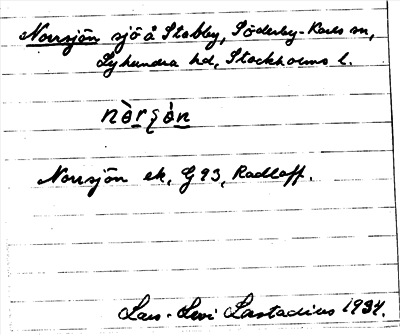 Norrsjön sjö å Stabby, Söderby-Karls sn,
Lyhundra hd, Stockholms l.
nòrʂòn
Norrsjön ek, G 93, Radloff.
Lars-Levi Læstadius 1934.